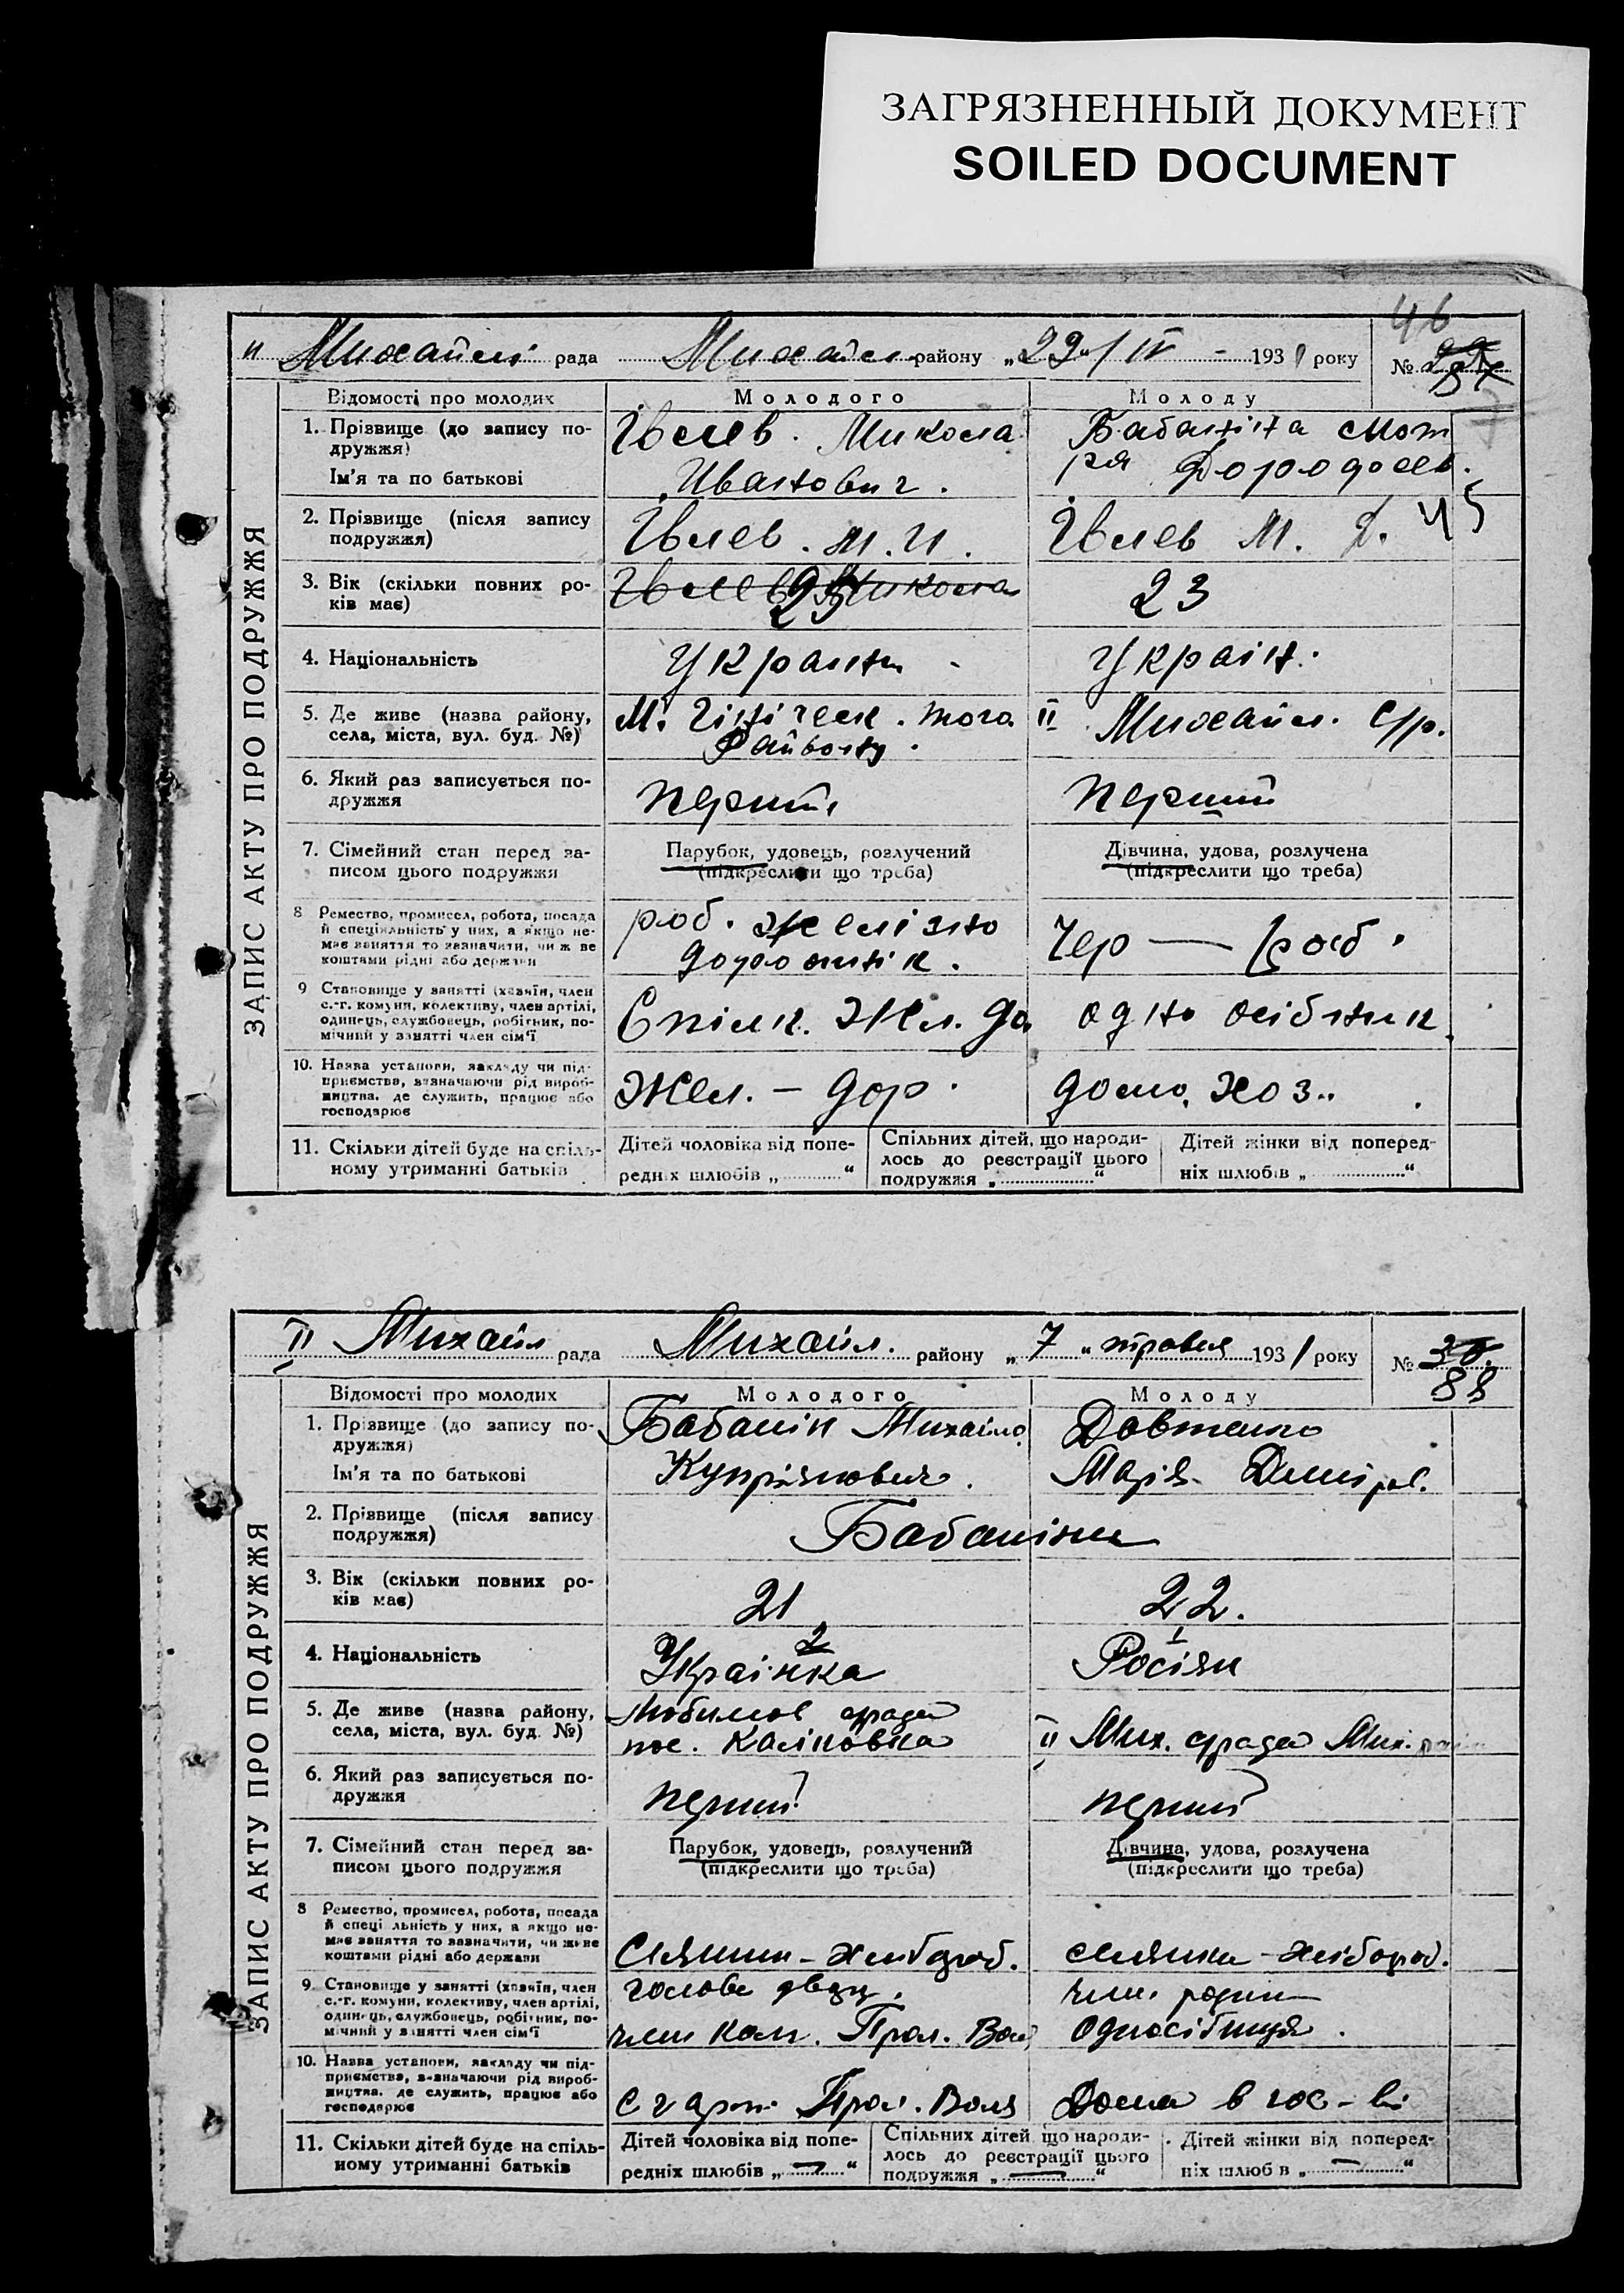 ЗАГРЯЗНЕННЫЙ ДОКУМЕНТ
SOILED DOCUMENT
46
рада района „ 193 року №
Відомості про молодих Молодого Молоду
ЗАПИС АКТУ ПРО ПОДРУЖЖЯ
1. Прізвище (до запису по-
дружжя)
Ім'я та по батькові
Микола
Иванович.
2. Прізвище (після запису
подружжя)
М. И.
М. Д. 45
3. Вік (скільки повних ро-
ків має)
23
4. Національність
Україн.
5. Де живе (назва району,
села, міста, вул. буд. №)
6. Який раз записується по-
дружжя
перший
перший
7. Сімейний стан перед за-
писом цього подружжя
Парубок, удовець, розлучений
(підкреслити що треба)
Дівчина, удова, розлучена
(підкреслити що треба)
8 Ремество, промисел, робота, посада
й спеціяльність у них, а якщо не-
має заняття то зазначити, чи ж ве
коштами рідні або держави
роб. желізно
дорожнік.
Чер — роб.
9 Становище у занятті (хазяїн, член
с.-г. комуни, колективу, член артілі,
одинець, службовець, робітник, по-
мічний у занятті член сім'ї
Спілк. Жел. до
одно осібник
10. Назва установи, закладу чи під-
приємства, зазначаючи рід вироб-
ництва, де служить, працює або
господарює
Жел. – дор.
домо. хоз..
11. Скільки дітей буде на спіль-
ному утриманні батьків
Дітей чоловіка від попе-
редніх шлюбів „ “
Спільних дітей, що народи-
лось до реєстрації цього
подружжя „ “
Дітей жінки від поперед-
ніх шлюбів „ “
II Михайл рада Михайл. району „7“ травня 1931 року № 30.
88
Відомості про молодих Молодого Молоду
ЗАПИС АКТУ ПРО ПОДРУЖЖЯ
1. Прізвище (до запису по-
дружжя)
Ім'я та по батькові
Бабанін Михайло
Купріянович.
Довженко
Марія
2. Прізвище (після запису
подружжя)
Бабаніни
3. Вік (скільки повних ро-
ків має)
21
22.
4. Національність
Українка
Росіян
5. Де живе (назва району,
села, міста, вул. буд. №)
Любимов срада
пос. Каліновка
II Мих. срада Мих. район
6. Який раз записується по-
дружжя
перший
перший
7. Сімейний стан перед за-
писом цього подружжя
Парубок, удовець, розлучений
(підкреслити що треба)
Дівчина, удова, розлучена
(підкреслити що треба)
8 Ремество, промисел, робота, посада
й спеціяльність у них, а якщо не-
має заняття то зазначити, чи живе
коштами рідні або держави
Селянин – хлібороб.
селянка – хлібороб.
9. Становище у занятті (хазяїн, член
с.-г. комуни, колективу, член артілі,
одинець, службовець, робітник, по-
мічний у занятті член сім'ї
голова
член Прол. Воля
член родини
односібниця.
10. Назва установи, закладу чи під-
приємства, зазначаючи рід вироб-
ництва, де служить, працює або
господарює
С г арт. Прол. Воля
Дома в гос-ві
11. Скільки дітей буде на спіль-
ному утриманні батьків
Дітей чоловіка від попе-
редніх шлюбів „ — “
Спільних дітей, що народи-
лось до реєстрації цього
подружжя „ — “
Дітей жінки від поперед-
ніх шлюбів „ — “